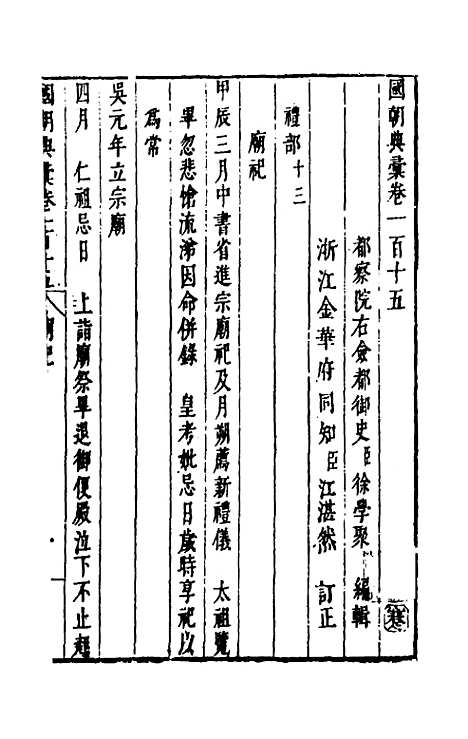 國朝典彙卷一百十五
都察院右僉都御史臣徐學聚 編輯
浙江金華府同知臣江湛然 訂正
禮部十三
廟祀
甲辰三月中書省進宗廟祀及月朔薦新禮儀 太祖覽
畢忽悲愴流涕因命併錄 皇考妣忌日歲時享祀以
爲常
吳元年立宗廟
四月 仁祖忌日 上詣廟祭畢退御便殿泣下不止起
國朝典彙卷一百十五 廟祀